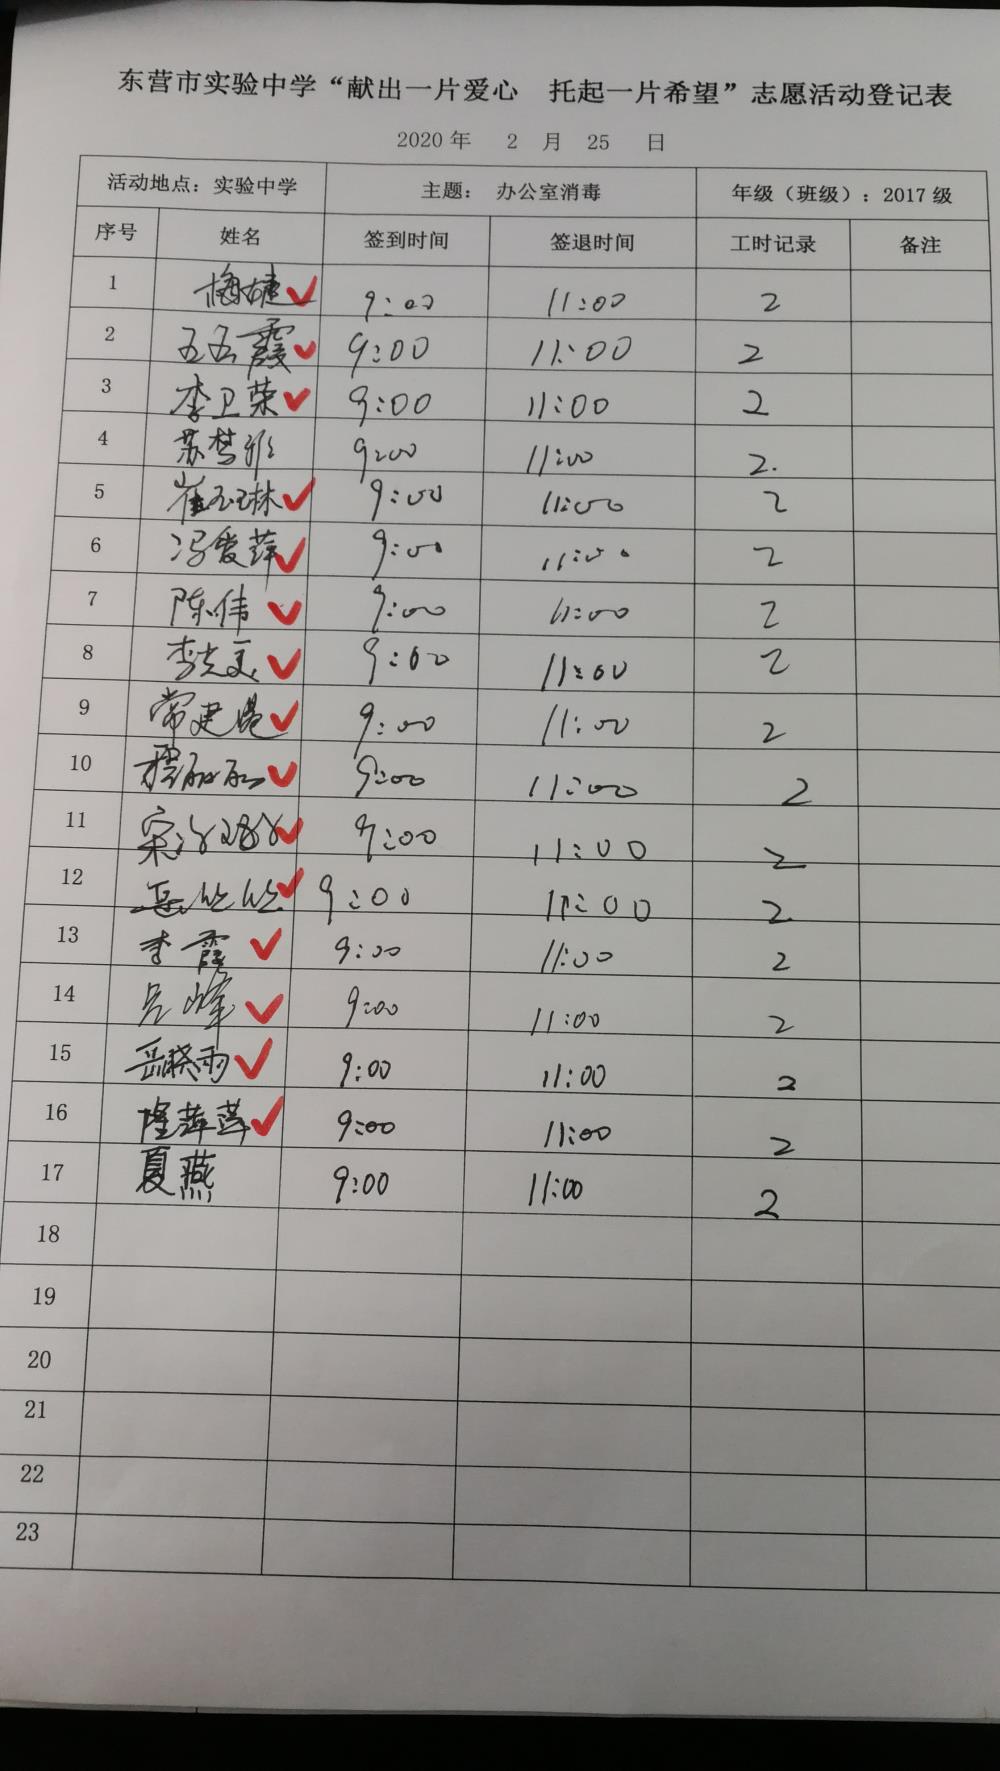 东营市实验中学“献出一片爱心 托起一片希望”志愿活动登记表
2020 年 2 月 25 日
活动地点：实验中学 主题： 办公室消毒 年级（班级）：2017 级
序号 姓名 签到时间 签退时间 工时记录 备注
1 梅婕 9:00 11:00 2
2 霞 9:00 11:00 2
3 李卫荣 9:00 11:00 2
4 苏梦雅 9:00 11:00 2.
5 崔玉琳 9:00 11:00 2
6 冯爱萍 9:00 11:00 2
7 陈伟 9:00 11:00 2
8 李 9:00 11:00 2
9 常建 9:00 11:00 2
10 程丽丽 9:00 11:00 2
11 宋 9:00 11:00 2
12 9:00 11:00 2
13 李霞 9:00 11:00 2
14 吕峰 9:00 11:00 2
15 岳晓雨 9:00 11:00 2
16 隆萍萍 9:00 11:00 2
17 夏燕 9:00 11:00 2
18
19
20
21
22
23